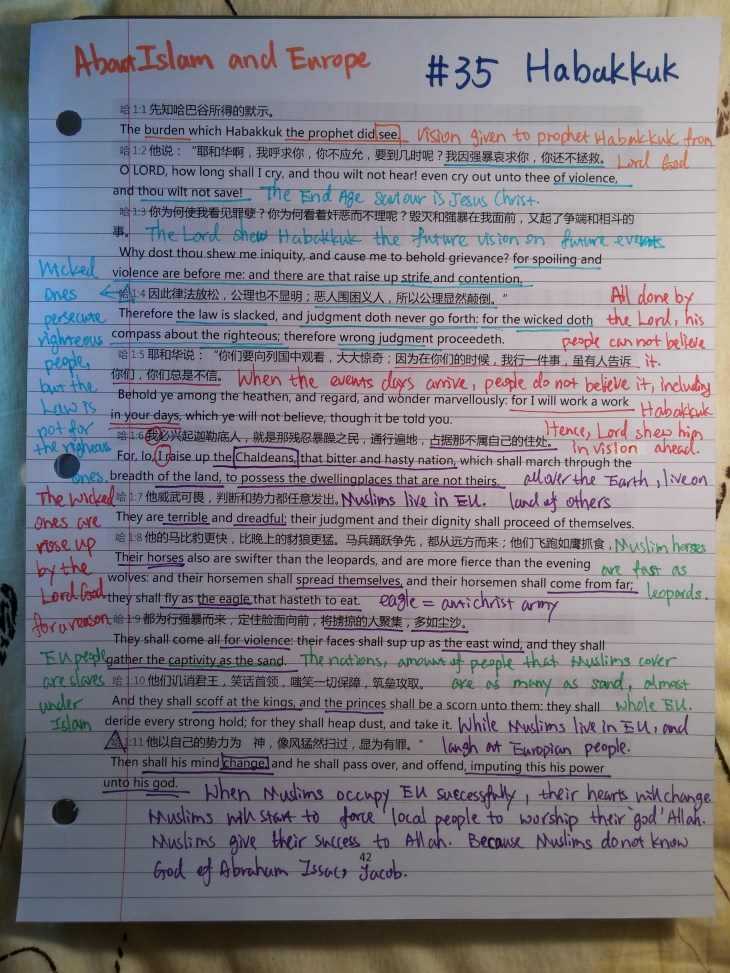 About Islam and Europe #35 Habakkuk
哈 1:1 先知哈巴谷所得的默示。
The burden which Habakkuk the prophet did see. Vision given to prophet Habakkuk from
哈 1:2 他说：“耶和华啊，我呼求你，你不应允，要到几时呢？我因强暴哀求你，你还不拯救。 Lord God
O LORD, how long shall I cry, and thou wilt not hear! even cry out unto thee of violence,
and thou wilt not save! The End Age saviour is Jesus Christ.
哈 1:3 你为何使我看见罪孽？你为何看着奸恶而不理呢？毁灭和强暴在我面前，又起了争端和相斗的
事。 The Lord shew Habakkuk the future vision on future events
Why dost thou shew me iniquity, and cause me to behold grievance? for spoiling and
violence are before me: and there are that raise up strife and contention.
哈 1:4 因此律法放松，公理也不显明；恶人围困义人，所以公理显然颠倒。”
Therefore the law is slacked, and judgment doth never go forth: for the wicked doth
compass about the righteous; therefore wrong judgment proceedeth.
Wicked
ones
persecute
righteous
people,
but the
Law is
not for
the righteous
ones.
All done by
the Lord, his
people can not believe
it.
哈 1:5 耶和华说：“你们要向列国中观看，大大惊奇；因为在你们的时候，我行一件事，虽有人告诉
你们，你们总是不信。 When the events days arrive, people do not believe it, including
Habakkuk
Behold ye among the heathen, and regard, and wonder marvellously: for I will work a work
in your days, which ye will not believe, though it be told you.
Hence, Lord shew him
in vision ahead.
哈 1:6 我必兴起迦勒底人，就是那残忍暴躁之民，通行遍地，占据那不属自己的住处。
For, lo, I raise up the Chaldeans, that bitter and hasty nation, which shall march through the
breadth of the land, to possess the dwellingplaces that are not theirs. all over the Earth, live on
land of others
哈 1:7 他威武可畏，判断和势力都任意发出。 Muslims live in EU.
They are terrible and dreadful: their judgment and their dignity shall proceed of themselves.
The wicked
ones are
rose up
by the
Lord God
for a reason
哈 1:8 他的马比豹更快，比晚上的豺狼更猛。马兵踊跃争先，都从远方而来；他们飞跑如鹰抓食，
Their horses also are swifter than the leopards, and are more fierce than the evening
wolves: and their horsemen shall spread themselves, and their horsemen shall come from far;
they shall fly as the eagle that hasteth to eat. eagle = antichrist army
Muslim horses
are fast as
leopards.
哈 1:9 都为行强暴而来，定住脸面向前，将掳掠的人聚集，多如尘沙。
They shall come all for violence: their faces shall sup up as the east wind, and they shall
gather the captivity as the sand. The nations, amount of people that Muslims cover
are as many as sand, almost
whole EU.
EU people
are slaves
under
Islam
哈 1:10 他们讥诮君王，笑话首领，嗤笑一切保障，筑垒攻取。
And they shall scoff at the kings, and the princes shall be a scorn unto them: they shall
deride every strong hold; for they shall heap dust, and take it. While Muslims live in EU, and
laugh at Europian people.
哈 1:11 他以自己的势力为 神，像风猛然扫过，显为有罪。”
Then shall his mind change, and he shall pass over, and offend, imputing this his power
unto his god. When Muslims occupy EU successfully, their hearts will change
Muslims will start to force local people to worship their god 'Allah.
Muslims give their success to Allah. Because Muslims do not know
God of Abraham Issac, Jacob.
42